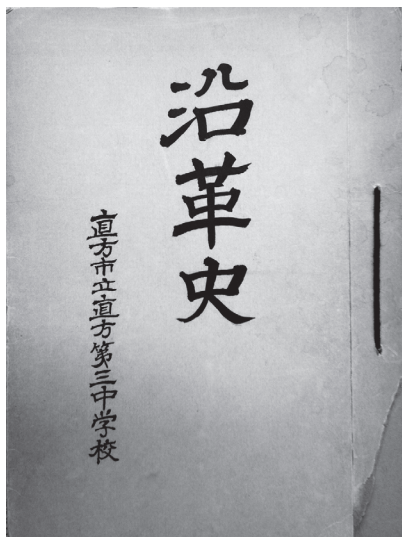 沿革史
直方市立直方第三中学校